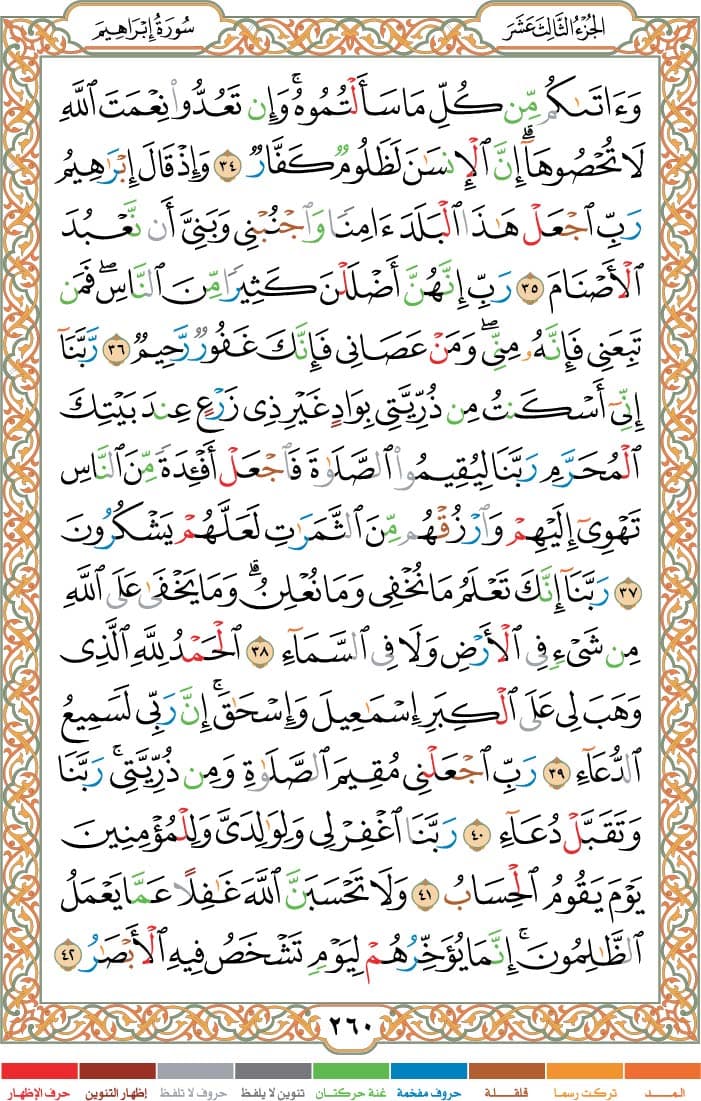 الجُزْءُ الثَّالِثَ عَشَرَ
سُورَةُ إِبْرَاهِيمَ
وَءَاتَىٰكُم مِّن كُلِّ مَا سَأَلْتُمُوهُۚ وَإِن تَعُدُّوا۟ نِعْمَتَ ٱللَّهِ
لَا تُحْصُوهَآۗ إِنَّ ٱلْإِنسَـٰنَ لَظَلُومٌ كَفَّارٌ ٣٤ وَإِذْ قَالَ إِبْرَٰهِيمُ
رَبِّ ٱجْعَلْ هَـٰذَا ٱلْبَلَدَ ءَامِنًا وَٱجْنُبْنِى وَبَنِىَّ أَن نَّعْبُدَ
ٱلْأَصْنَامَ ٣٥ رَبِّ إِنَّهُنَّ أَضْلَلْنَ كَثِيرًا مِّنَ ٱلنَّاسِۖ فَمَن
تَبِعَنِى فَإِنَّهُۥ مِنِّىۖ وَمَنْ عَصَانِى فَإِنَّكَ غَفُورٌ رَّحِيمٌ ٣٦ رَّبَّنَآ
إِنِّىٓ أَسْكَنتُ مِن ذُرِّيَّتِى بِوَادٍ غَيْرِ ذِى زَرْعٍ عِندَ بَيْتِكَ
ٱلْمُحَرَّمِ رَبَّنَا لِيُقِيمُوا۟ ٱلصَّلَوٰةَ فَٱجْعَلْ أَفْـِٔدَةً مِّنَ ٱلنَّاسِ
تَهْوِىٓ إِلَيْهِمْ وَٱرْزُقْهُم مِّنَ ٱلثَّمَرَٰتِ لَعَلَّهُمْ يَشْكُرُونَ
٣٧ رَبَّنَآ إِنَّكَ تَعْلَمُ مَا نُخْفِى وَمَا نُعْلِنُۗ وَمَا يَخْفَىٰ عَلَى ٱللَّهِ
مِن شَىْءٍ فِى ٱلْأَرْضِ وَلَا فِى ٱلسَّمَآءِ ٣٨ ٱلْحَمْدُ لِلَّهِ ٱلَّذِى
وَهَبَ لِى عَلَى ٱلْكِبَرِ إِسْمَـٰعِيلَ وَإِسْحَـٰقَۚ إِنَّ رَبِّى لَسَمِيعُ
ٱلدُّعَآءِ ٣٩ رَبِّ ٱجْعَلْنِى مُقِيمَ ٱلصَّلَوٰةِ وَمِن ذُرِّيَّتِىۚ رَبَّنَا
وَتَقَبَّلْ دُعَآءِ ٤٠ رَبَّنَا ٱغْفِرْ لِى وَلِوَٰلِدَىَّ وَلِلْمُؤْمِنِينَ
يَوْمَ يَقُومُ ٱلْحِسَابُ ٤١ وَلَا تَحْسَبَنَّ ٱللَّهَ غَـٰفِلًا عَمَّا يَعْمَلُ
ٱلظَّـٰلِمُونَۚ إِنَّمَا يُؤَخِّرُهُمْ لِيَوْمٍ تَشْخَصُ فِيهِ ٱلْأَبْصَـٰرُ ٤٢
٢٦٠
المـــد تركت رسما قلقـلـة حروف مفخمة غنة حركتان تنوين لا يلفظ حروف لا تلفظ إظهار التنوين حرف الإظهار